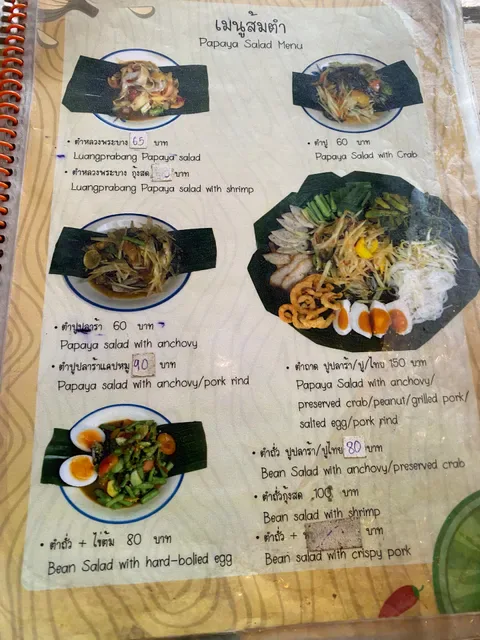 เมนูส้มตำ
Papaya Salad Menu
• ตำหลวงพระบาง 65 บาท
Luangprabang Papaya salad
• ตำหลวงพระบาง กุ้งสด บาท
Luangprabang Papaya salad with shrimp
• ตำปู 60 บาท
Papaya Salad with Crab
• ตำปูปลาร้า 60 บาท
Papaya salad with anchovy
• ตำปูปลาร้าแคบหมู 90 บาท
Papaya salad with anchovy/pork rind
• ตำถาด ปูปลาร้า/ปู/ไทย 150 บาท
Papaya Salad with anchovy/
preserved crab/peanut/grilled pork/
salted egg/pork rind
• ตำถั่ว ปูปลาร้า/ปูไทย 80 บาท
Bean Salad with anchovy/preserved crab
• ตำถั่วกุ้งสด 100 บาท
Bean Salad with shrimp
• ตำถั่ว + บาท
Bean salad with crispy pork
• ตำถั่ว + ไข่ต้ม 80 บาท
Bean Salad with hard-bolied egg